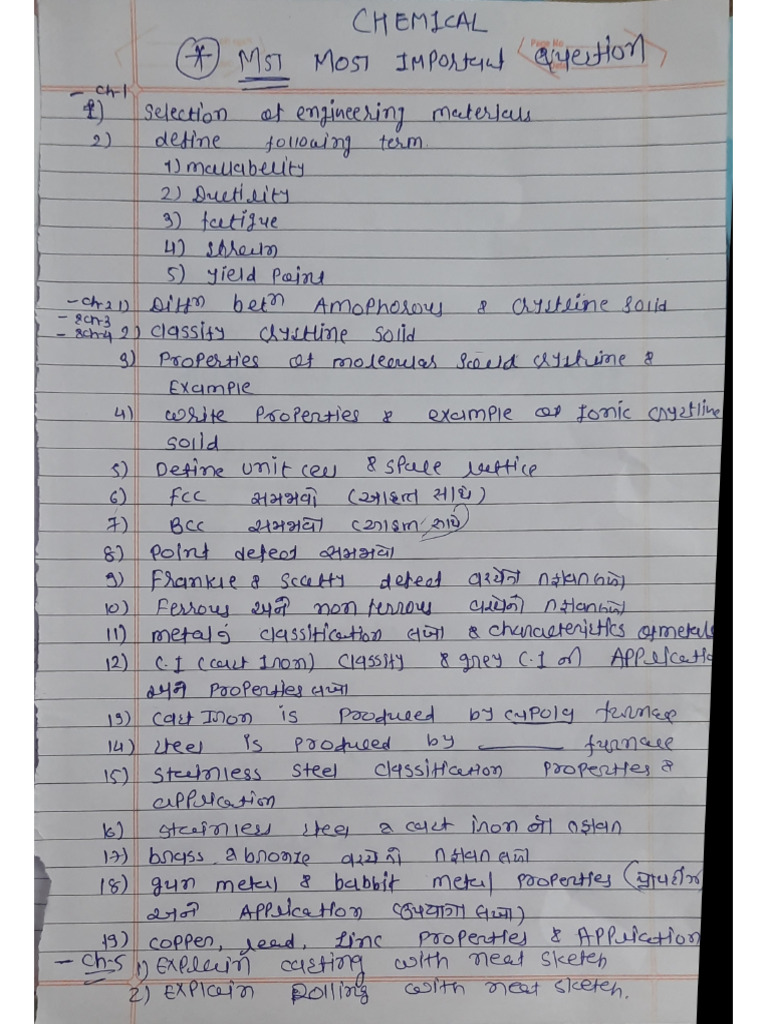 CHEMICAL
* MST MOST IMPortant question
- Ch-1
1) selection of engineering materials
2) define following term.
1) mallabelity
2) Ductility
3) fatigue
4) strain
5) yield Point
- Ch-2 1) Diffn betn Amophorous & crystline solid
- &ch-3
- &ch-4 2) classify crystline solid
3) Properties of molecular solid crystline &
Example
4) write Properties & example of Ionic crystline
solid
5) Define unit cell & space lattice
6) FCC સમજાવો (આકૃતિ સાથે)
7) BCC સમજાવો (આકૃતિ સાથે)
8) Point defect સમજાવો
9) Frankie & Scotty defect વચ્ચેનો તફાવત લખો
10) Ferrous અને non ferrous વચ્ચેનો તફાવત લખો
11) metals classification લખો & characteristics of metals
12) C.I (cast Iron) classify & grey C.I ની APPlication
અને Properties લખો
13) cast Iron is Produced by cupola furnace
14) steel is produced by ______ furnace
15) stainless steel classification properties &
application
16) stainless steel & cast iron નો તફાવત
17) brass & bronze વચ્ચેનો તફાવત લખો
18) gun metal & babbit metal properties (
અને APPlication લખો)
19) copper, lead, zinc properties & Application
- Ch-5 1) Explain casting with neat sketch
2) Explain Rolling with neat sketch.